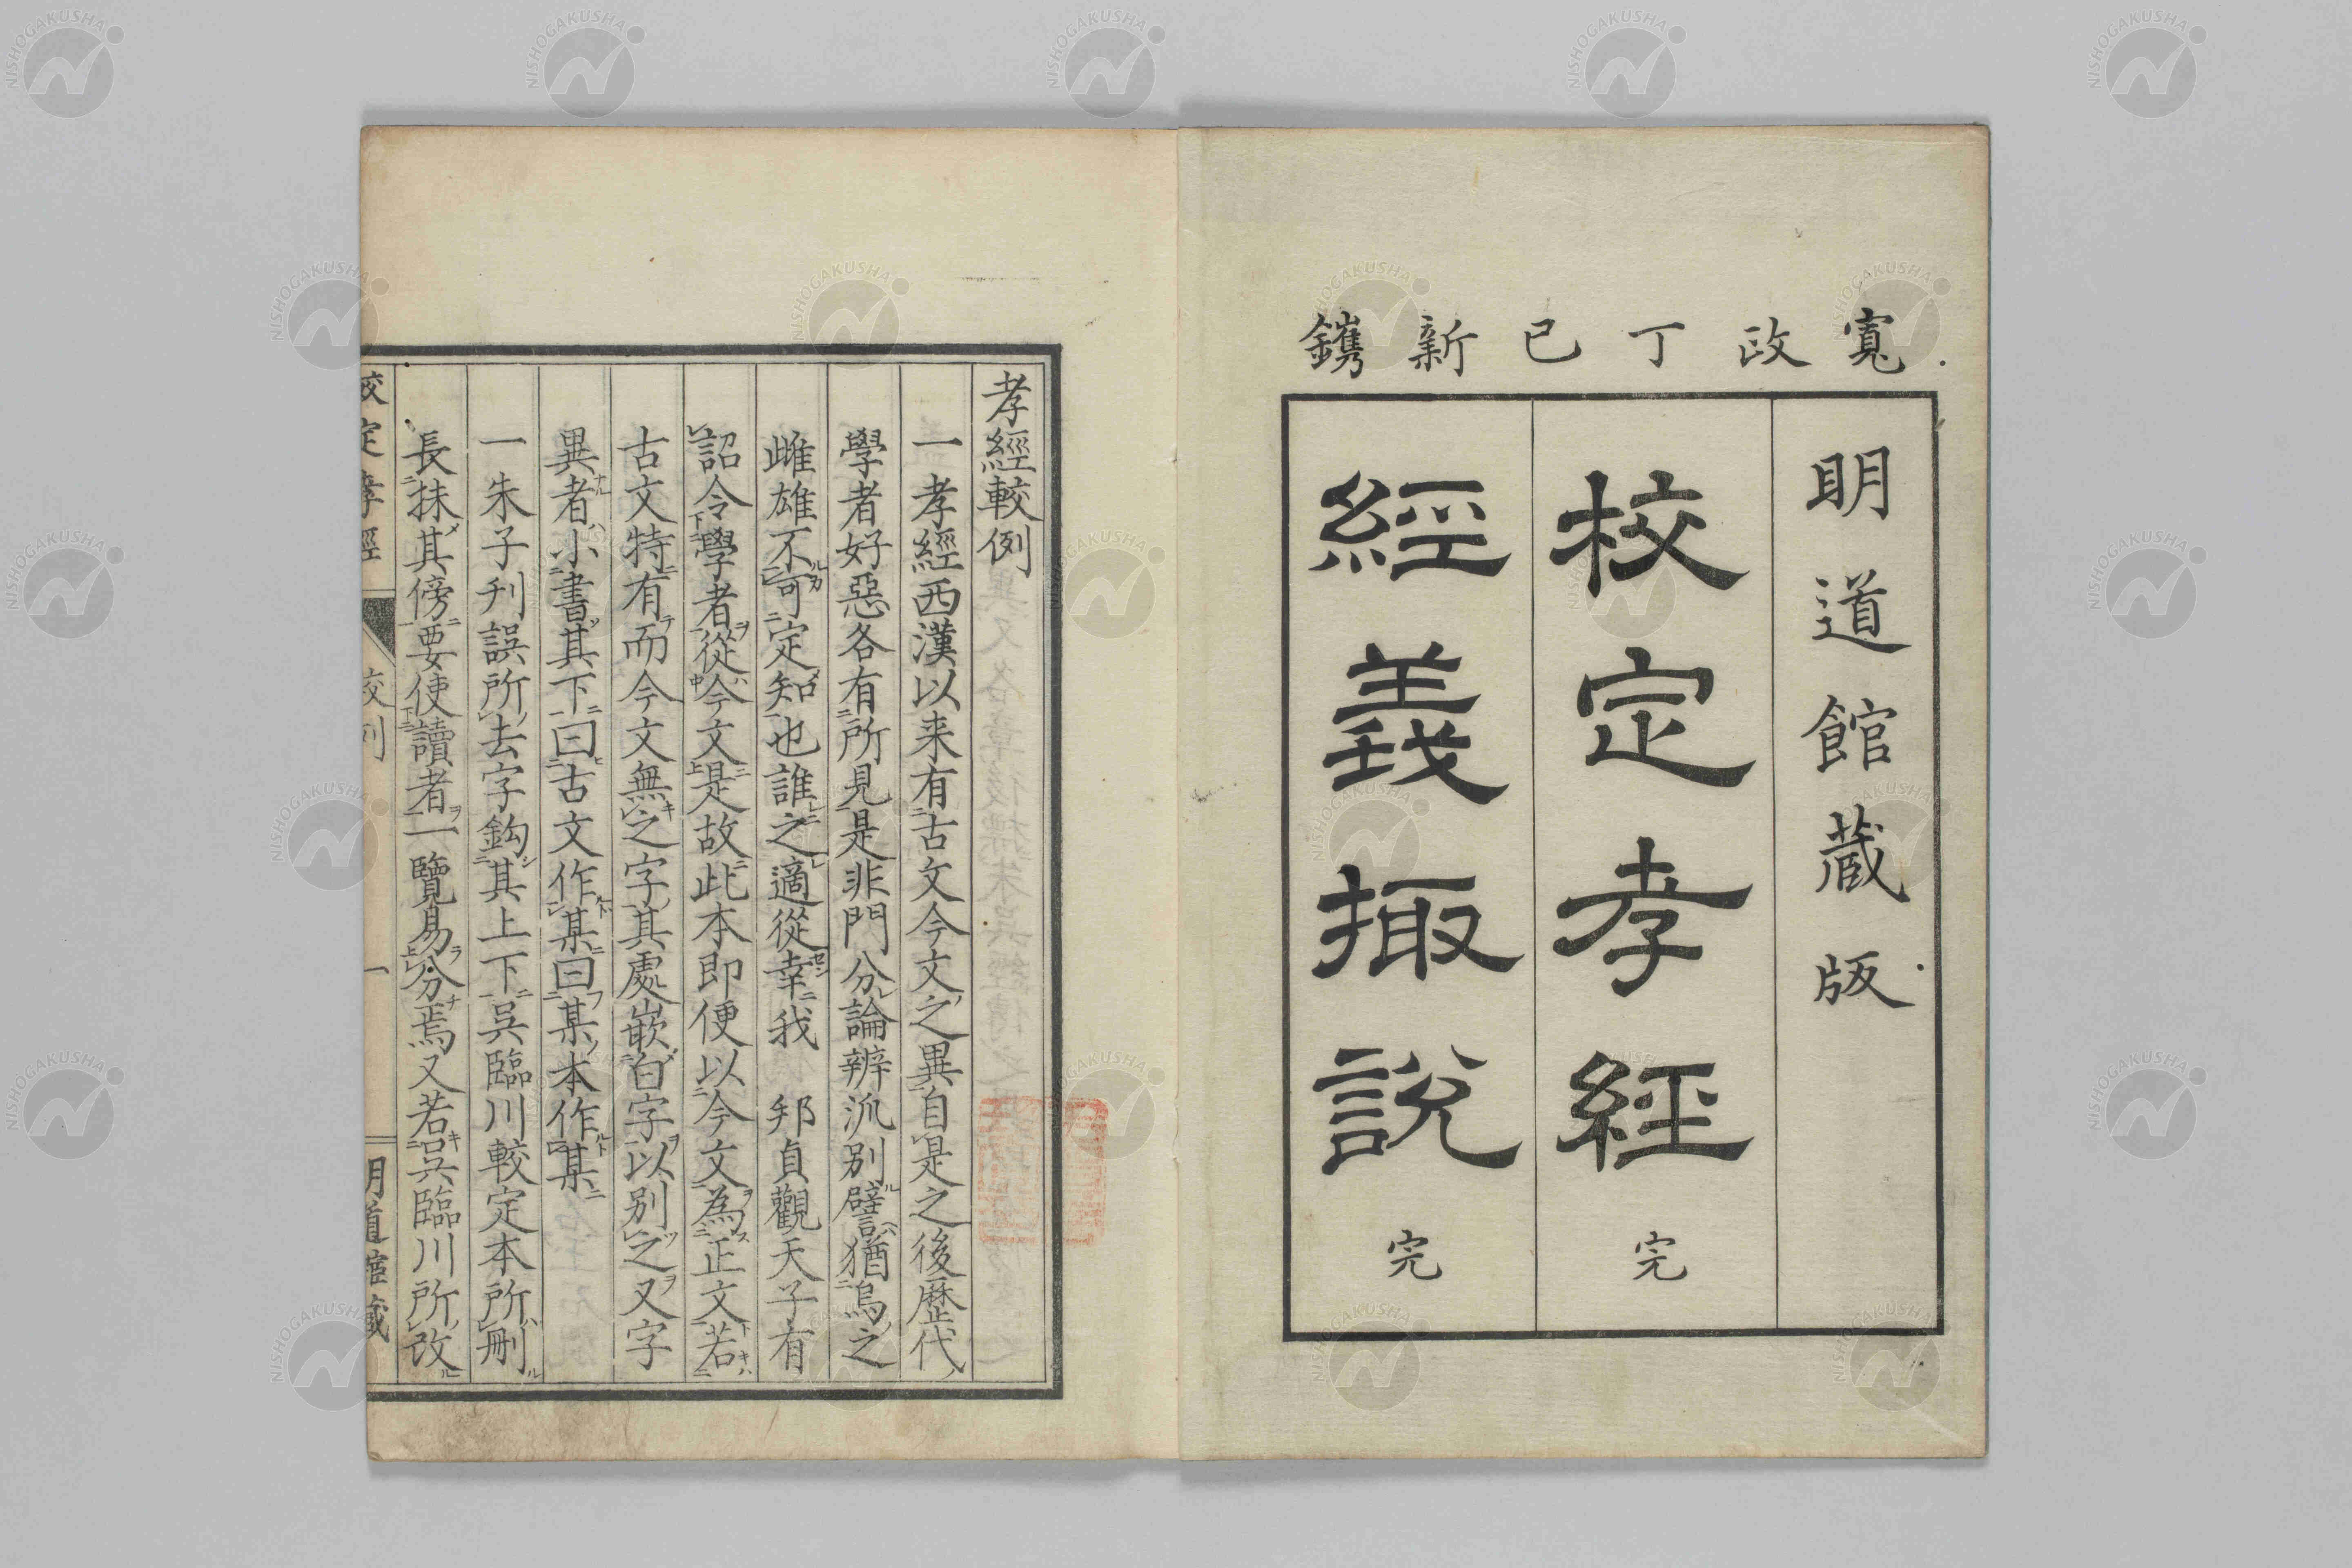 寬政丁巳新鐫
明道館蔵版
校定孝經 完
經義掫說 完
孝經較例
一孝經西漢以来有古文今文之異自是之後歷代
學者好惡各有所見是非門分論辨派別譬猶烏之
雌雄不可定知也誰之適從幸我 邦貞觀天子有
詔令學者從今文是故此本即便以今文為正文若
古文特有而今文無之字其處嵌白字以別之又字
異者小書其下曰古文作某曰某本作某
一朱子刋誤所去字鈎其上下吳臨川較定本所刪
長抹其傍要使讀者一覽易分焉又若吳臨川所改
校定孝經 校例 一 明道館藏
NISHOGAKUSHA